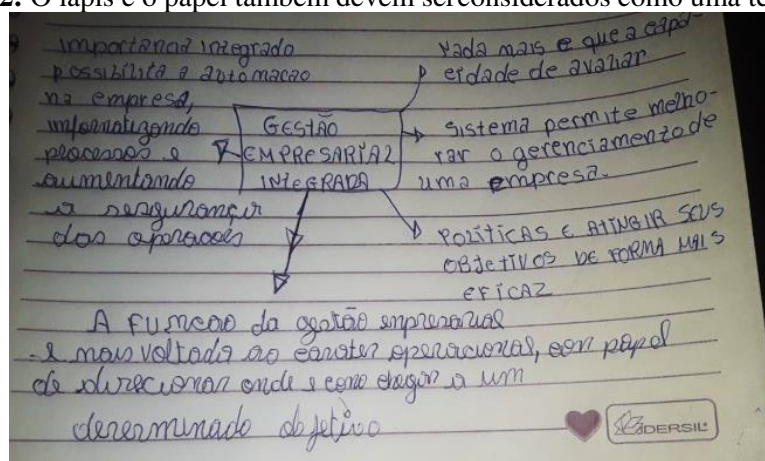 2. O lápis e o papel também devem serconsiderados como uma te
importancia integrado
possibilita a automacao
na empresa,
informatizando
processos e
aumentando
a
das operacoes
GESTÃO
EMPRESARIAL
INTEGRADA
nada mais e que a capa-
cidade de avaliar
Sistema permite melho-
rar o gerenciamento de
uma empresa.
POLÍTICAS E ATINGIR SEUS
OBJETIVOS DE FORMA MAIS
EFICAZ
A FUNCAO da gestão empresarial
e mais voltada ao carater operacional, com papel
de direcionar onde e como chegar a um
determinado objetivo
CADERSIL